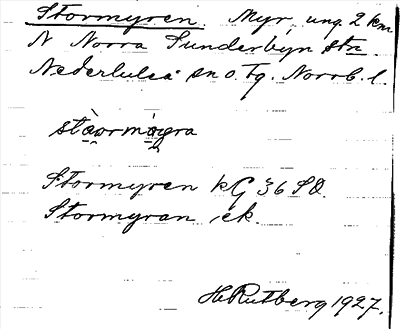 Stormyren. Myr, ung. 2 km
N Norra Sunderbyn stn
Nederluleå sn o. tg. Norrb. l.
Stormyren kG 36 SO.
Stormyran ek.
H Rutberg 1927.